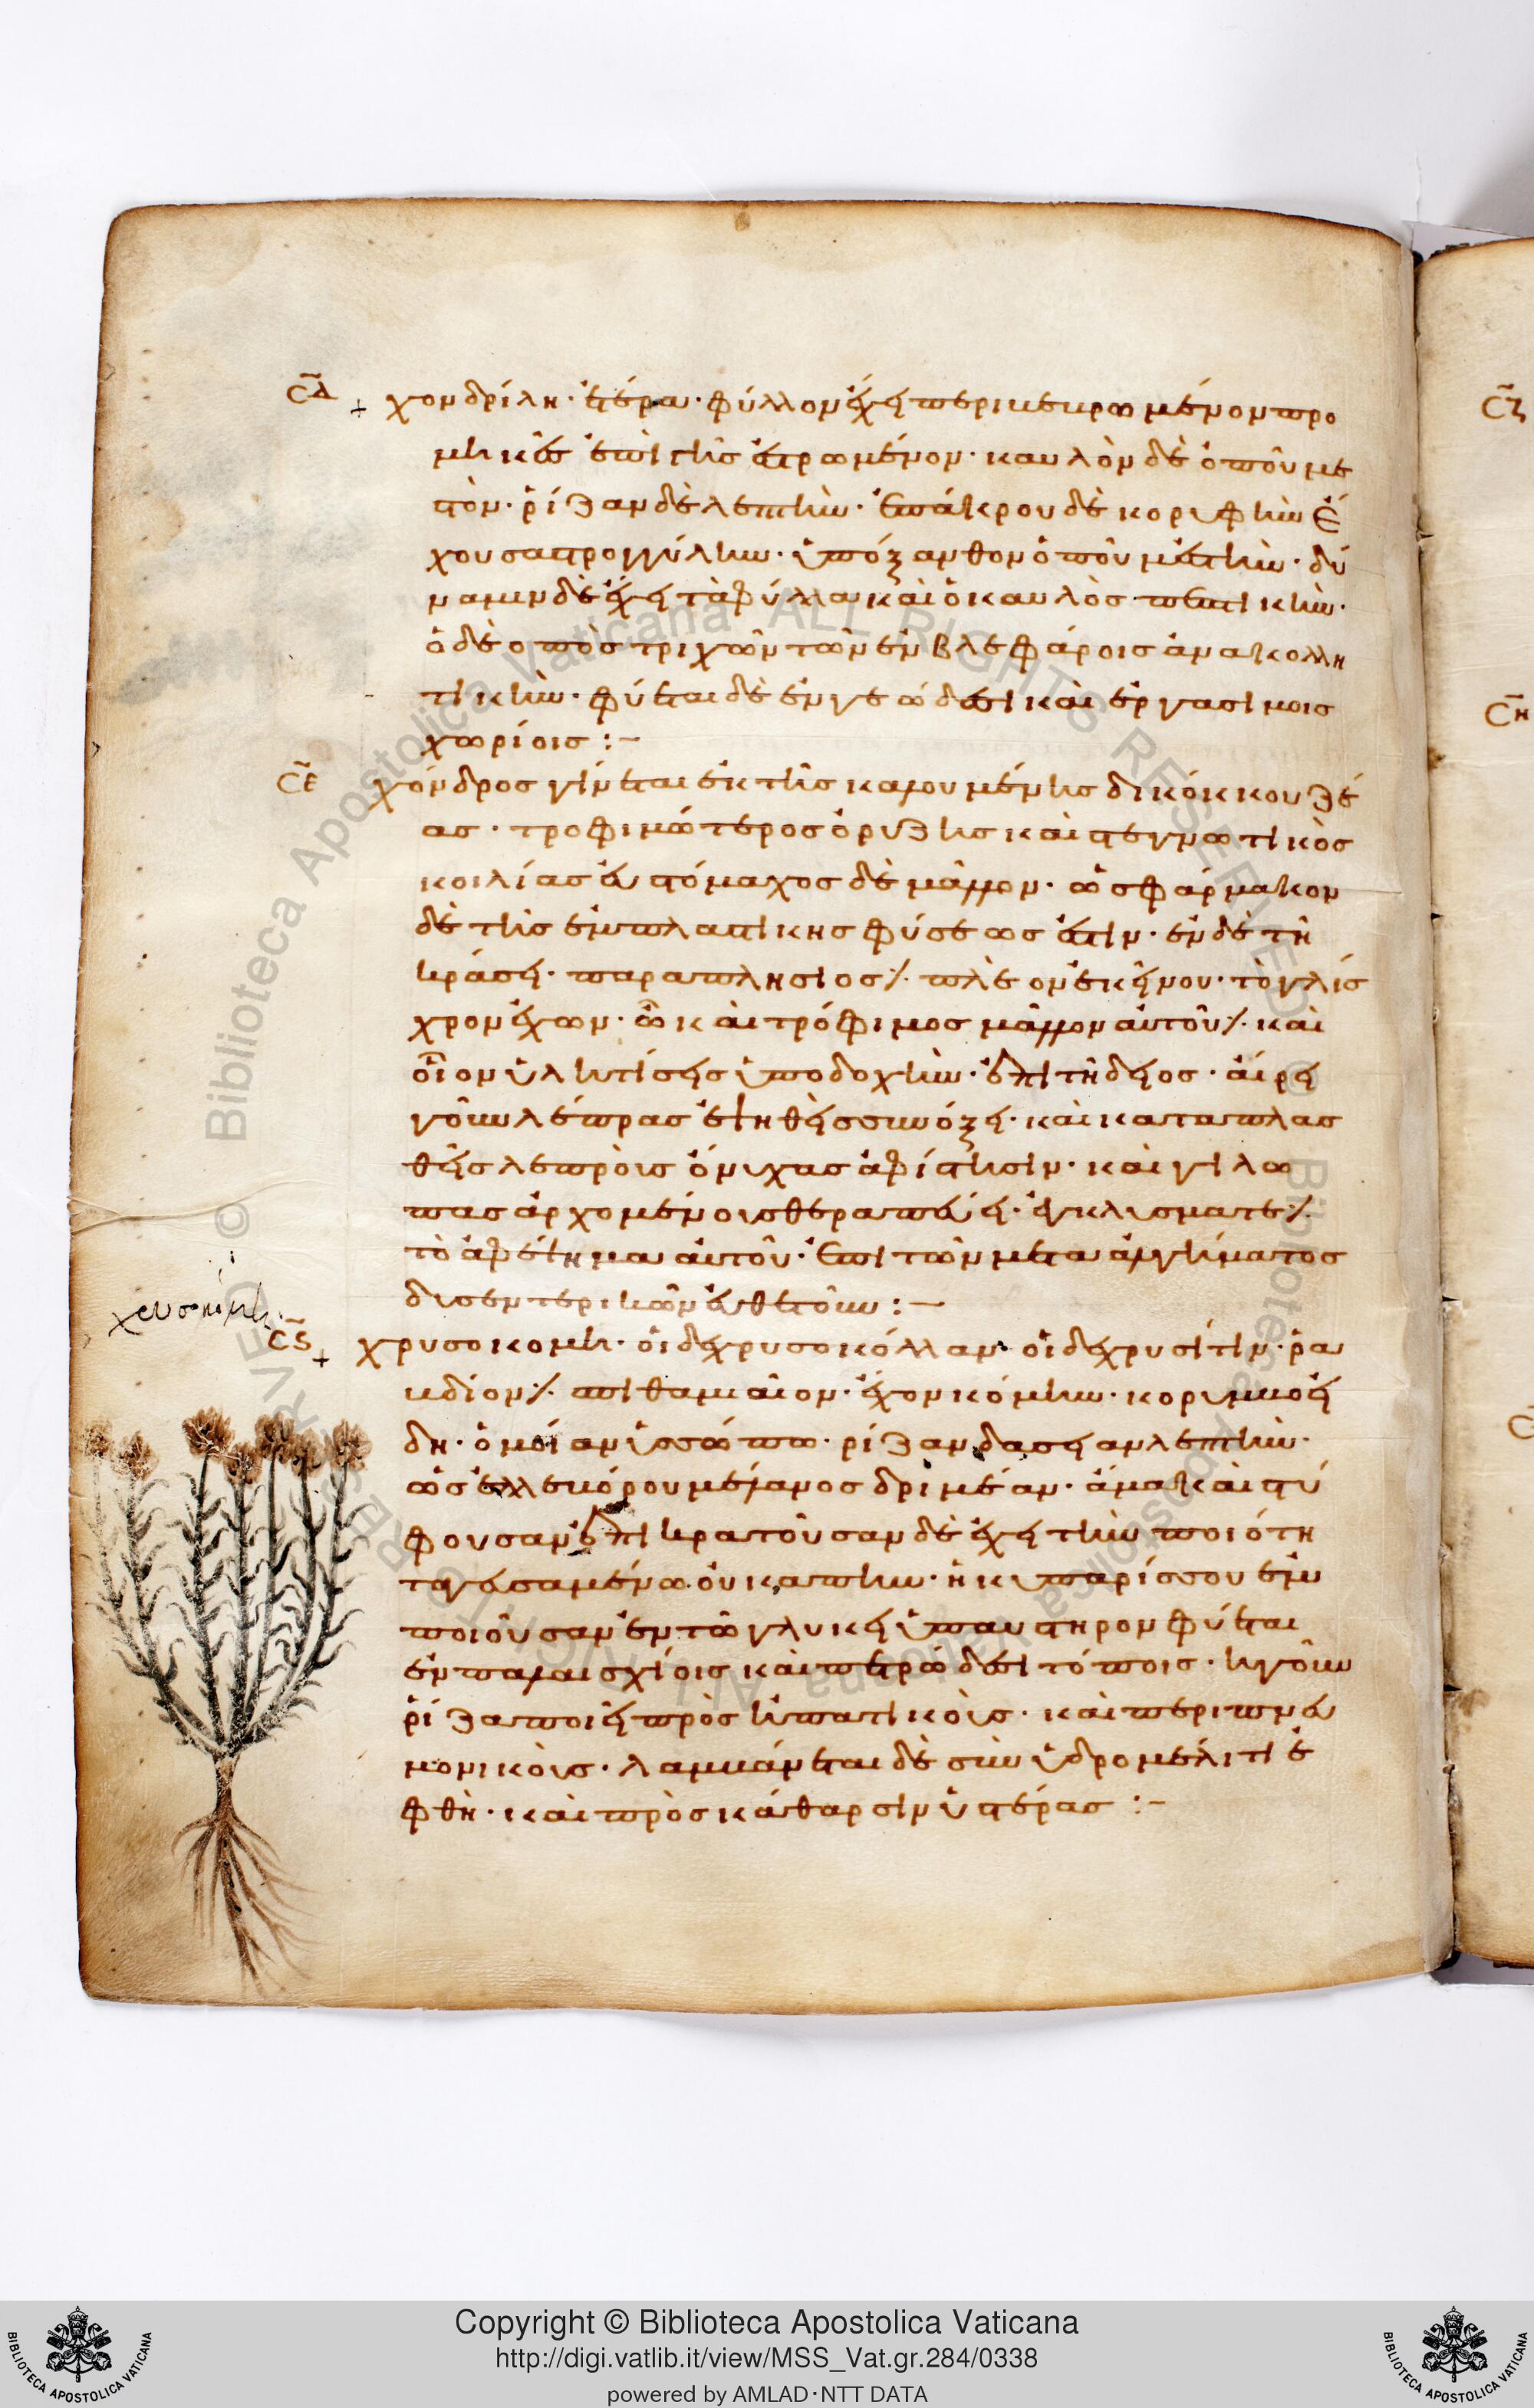 σδ χονδρίλη· ἑτέρα· φύλλον ἔχει περικεκρωμένον προ
μικὲς ἐπὶ γῆς ἐστρωμένον· καυλὸν δὲ ὀποῦ με
στόν· ῥίζαν δὲ λεπτὴν· ἐπάκρου δὲ κορυφὴν ἔ
χουσα στρογγύλην· ὑπόξανθον ὀποῦ μέστὴν· δύ
ναμιν δὲ ἔχει τὰ φύλλα καὶ ὁ καυλὸς πεπτικὴν·
ὁ δὲ οπὸς τριχῶν τῶν ἐν βλεφάροις ἀνακολλη
τικὴν· φύεται δὲ ἐν γεώδεσι καὶ ἐργασίμοις
χωρίοις :-
σε χόνδρος γίνεται ἐκ τῆς καλουμένης δικόκκου ζέ
ας· τροφιμώτερος ὀρύζης καὶ στεγνωτικὸς
κοιλίας εὐστόμαχος δὲ μᾶλλον· ὡς φάρμακον
δὲ τῆς ἐμπλαστικης φύσεως ἐστιν· ἐν δὲ τῆ
κράσει· παραπλησιος ⁒ πλὲον ἐκείνου· τὸ γλίσ
χρον ἔχων· ὧ καὶ τρόφιμος μᾶλλον αὐτοῦ ⁒ καὶ
οἷον ὑλητίσεις ὑποδοχὴν· ἐπιτήδειος· αἴρει
γοῦν λέπρας ἑψηθεὶς σὺν όξει· καὶ καταπλασ
θεὶς λεπροὶς ὄνυχας ἀφίστησιν· καὶ γιλω
πας ἀρχομένοις θεραπεύει· ἐγκλυσματε ⁒
τὸ ἀφέψημα αὐτοῦ· ἐπὶ τῶν μετα ἀλγήματος
δυσεντερικῶν εὐθετοῦν :—
χρυσοκόμη
σϛ χρυσοκομη· οἱ δε χρυσοκόλλαν· οἱ δε χρυσίτιν· ῥα
βδίον ⁒ σπιθαμιαῖον· ἔχον κόμην· κορυμβοεί
δη· ὁμοίαν ὑσσώπω· ρίζαν δασειαν λεπτὴν·
ὡς ἑλλεβόρου μέλανος δριμέαν· ἅμα καὶ στύ
φουσαν ἐπικρατοῦσαν δὲ ἔχει τὴν ποιότη
ποιοῦσαν ἐν τῶ γλυκεῖ ὑπαυστηρον φύεται
ἐν παλαισκίοις καὶ πετρώδεσι τόποις· ηγοῦν
ῥίζα ποιεῖ πρὸς ἡπατικοὺς· καὶ περιπνευ
μονικοὺς· λαμβάνεται δὲ σὺν ὑδρομέλιτι ἑ
φθὴ· καὶ πρὸς κάθαρσιν ὑστέρας :-
σζ
ση
Copyright © Biblioteca Apostolica Vaticana
http://digi.vatlib.it/view/MSS_Vat.gr.284/0338
powered by AMLAD·NTT DATA
BIBLIOTECA APOSTOLICA VATICANA
BIBLIOTECA APOSTOLICA VATICANA